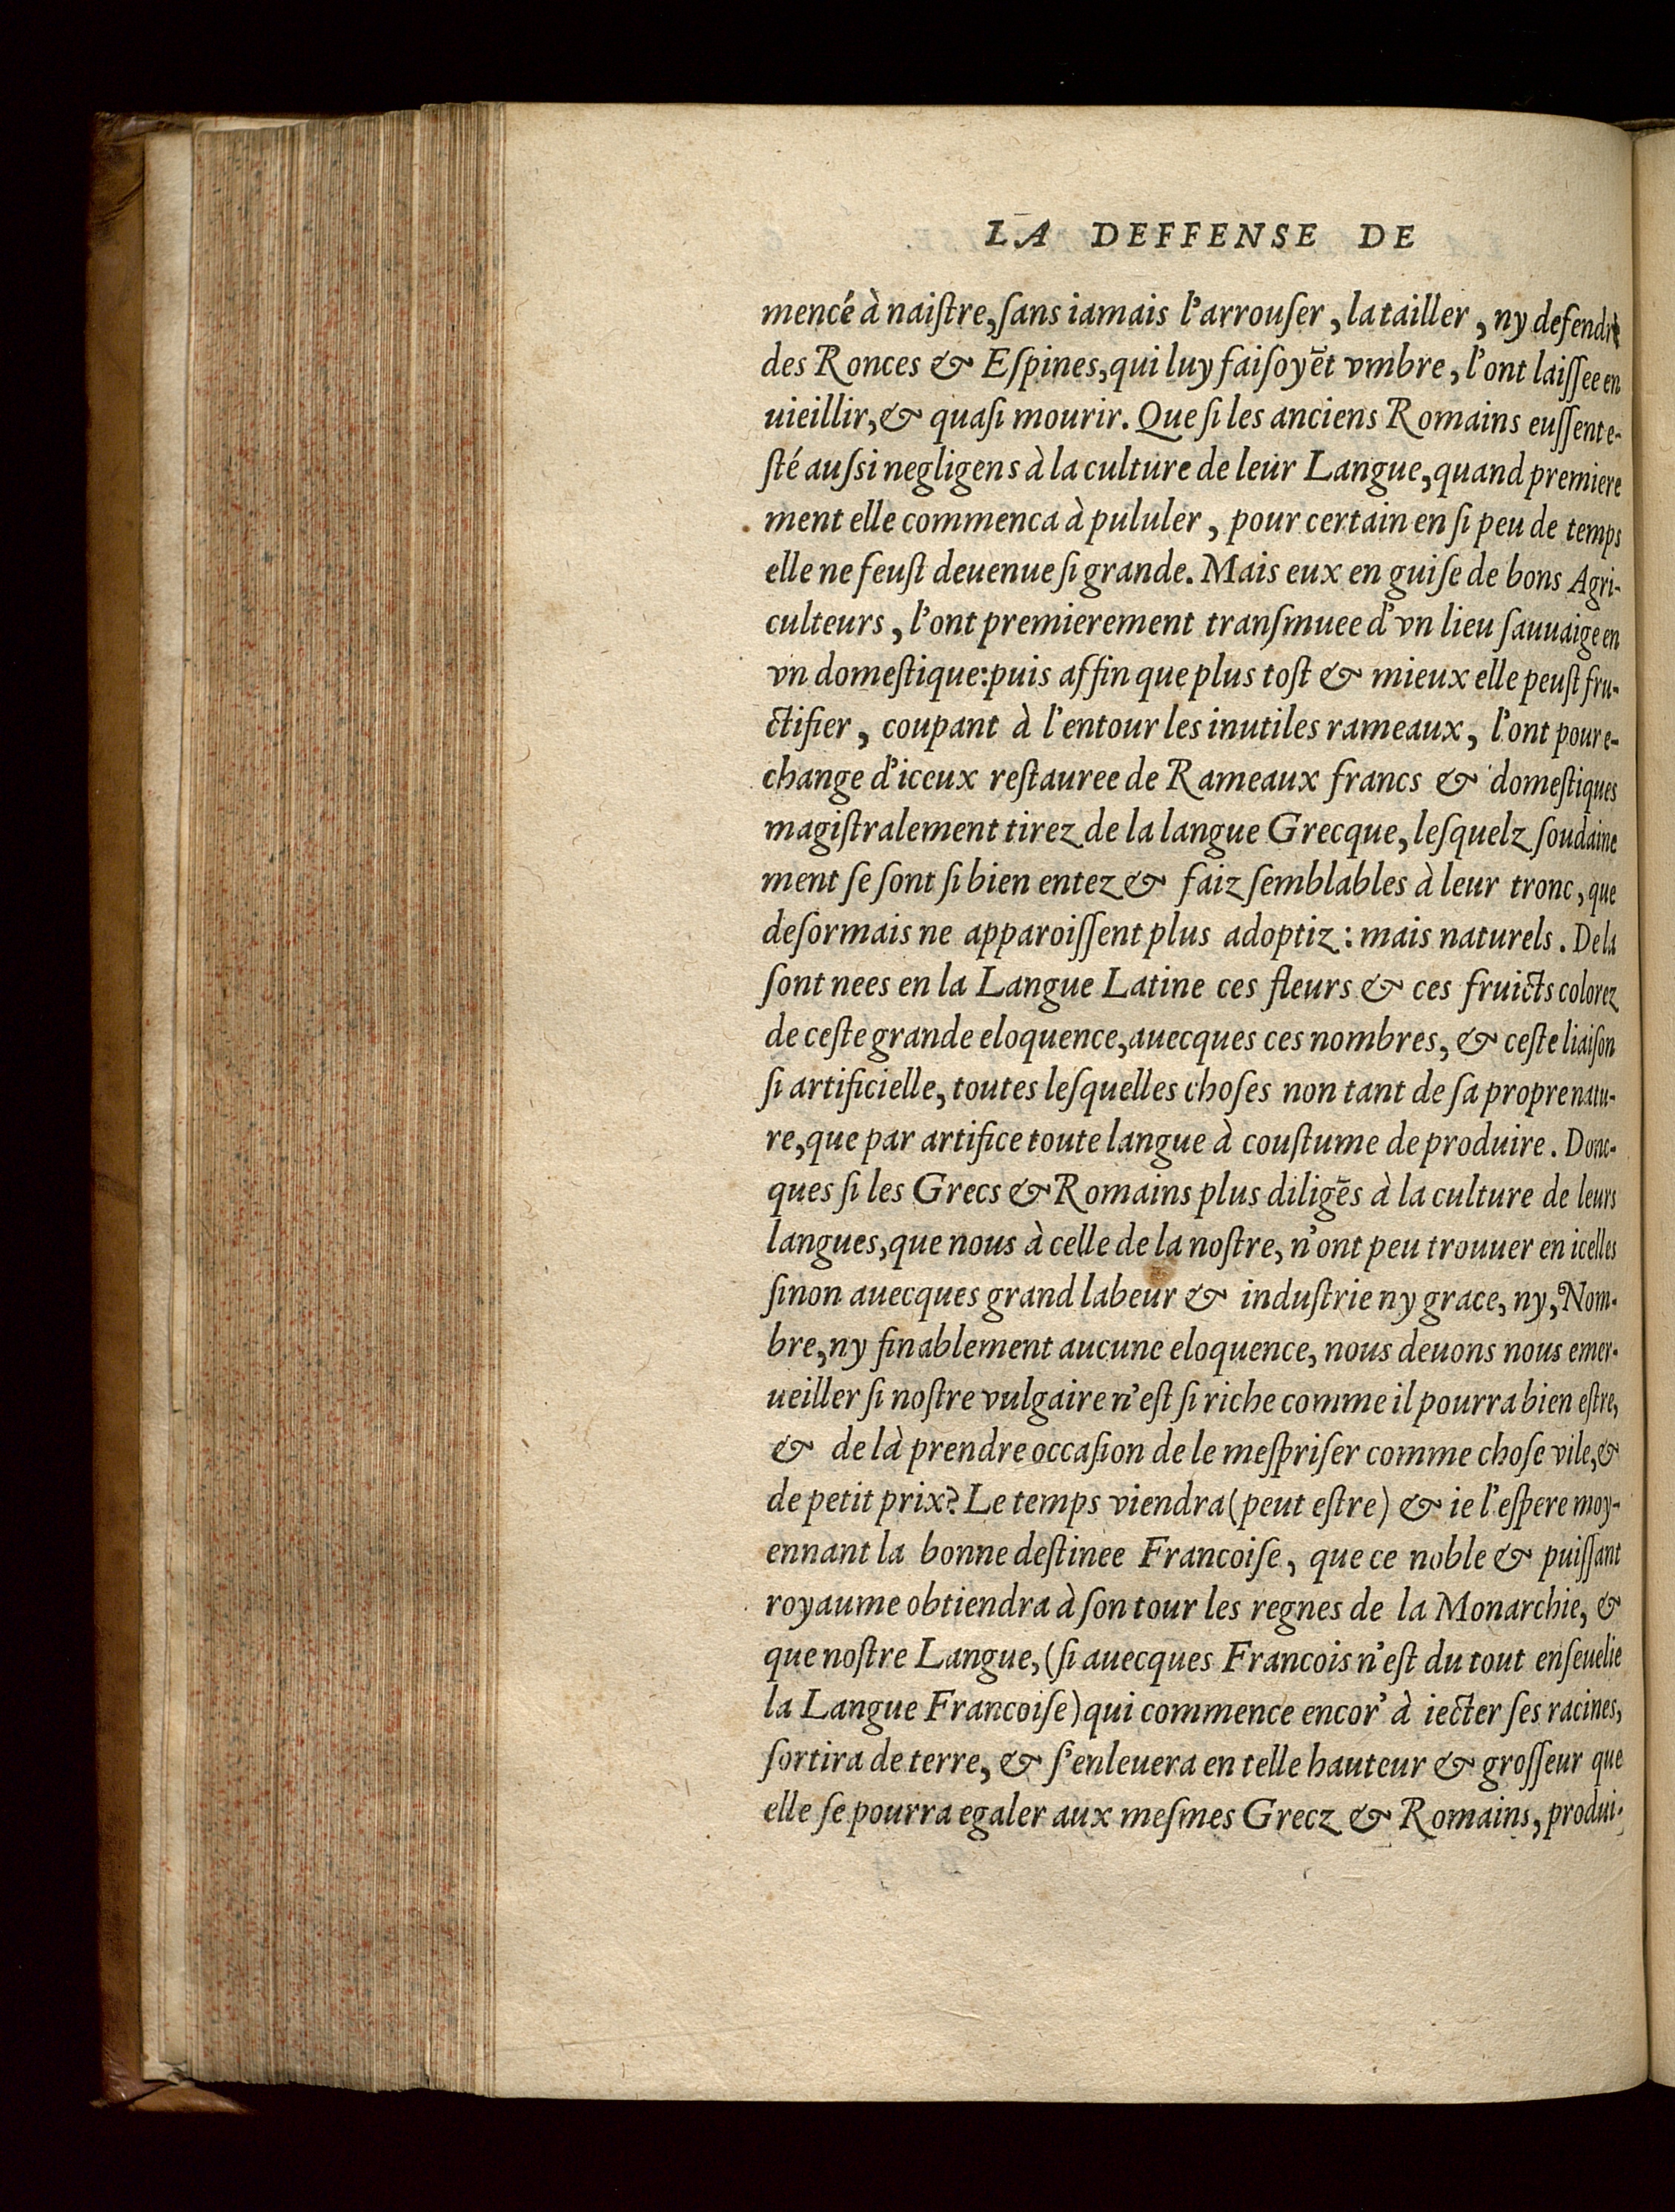 LA DEFFENSE DE
mencé à naiſtre, ſans iamais l'arrouſer, la tailler, ny defendre
des Ronces & Eſpines, qui luy faiſoyēt vmbre, l'ont laiſſee en
uieillir, & quaſi mourir. Que ſi les anciens Romains euſſent e-
ſté auſsi negligens à la culture de leur Langue, quand premiere
ment elle commenca à pululer, pour certain en ſi peu de temps
elle ne feuſt deuenue ſi grande. Mais eux en guiſe de bons Agri-
culteurs, l'ont premierement tranſmuee d'vn lieu ſauuaige en
vn domeſtique: puis affin que plus toſt & mieux elle peuſt fru-
ctifier, coupant à l'entour les inutiles rameaux, l'ont pour e-
change d'iceux reſtauree de Rameaux francs & domeſtiques
magiſtralement tirez de la langue Grecque, leſquelz ſoudaine
ment ſe ſont ſi bien entez & faiz ſemblables à leur tronc, que
deſormais ne apparoiſſent plus adoptiz: mais naturels. De la
ſont nees en la Langue Latine ces fleurs & ces fruicts colorez
de ceſte grande eloquence, auecques ces nombres, & ceſte liaiſon
ſi artificielle, toutes leſquelles choſes non tant de ſa propre natu-
re, que par artifice toute langue à couſtume de produire. Donc-
ques ſi les Grecs & Romains plus diligēs à la culture de leurs
langues, que nous à celle de la noſtre, n'ont peu trouuer en icelles
ſinon auecques grand labeur & induſtrie ny grace, ny, Nom-
bre, ny finablement aucune eloquence, nous deuons nous emer-
ueiller ſi noſtre vulgaire n'eſt ſi riche comme il pourra bien eſtre,
& de là prendre occaſion de le meſpriſer comme choſe vile, &
de petit prix? Le temps viendra (peut eſtre) & ie l'eſpere moy-
ennant la bonne deſtinee Francoiſe, que ce noble & puiſſant
royaume obtiendra à ſon tour les regnes de la Monarchie, &
que noſtre Langue, (ſi auecques Francois n'eſt du tout enſeuelie
la Langue Francoiſe) qui commence encor' à iecter ſes racines,
ſortira de terre, & ſ'enleuera en telle hauteur & groſſeur que
elle ſe pourra egaler aux meſmes Grecz & Romains, produi-